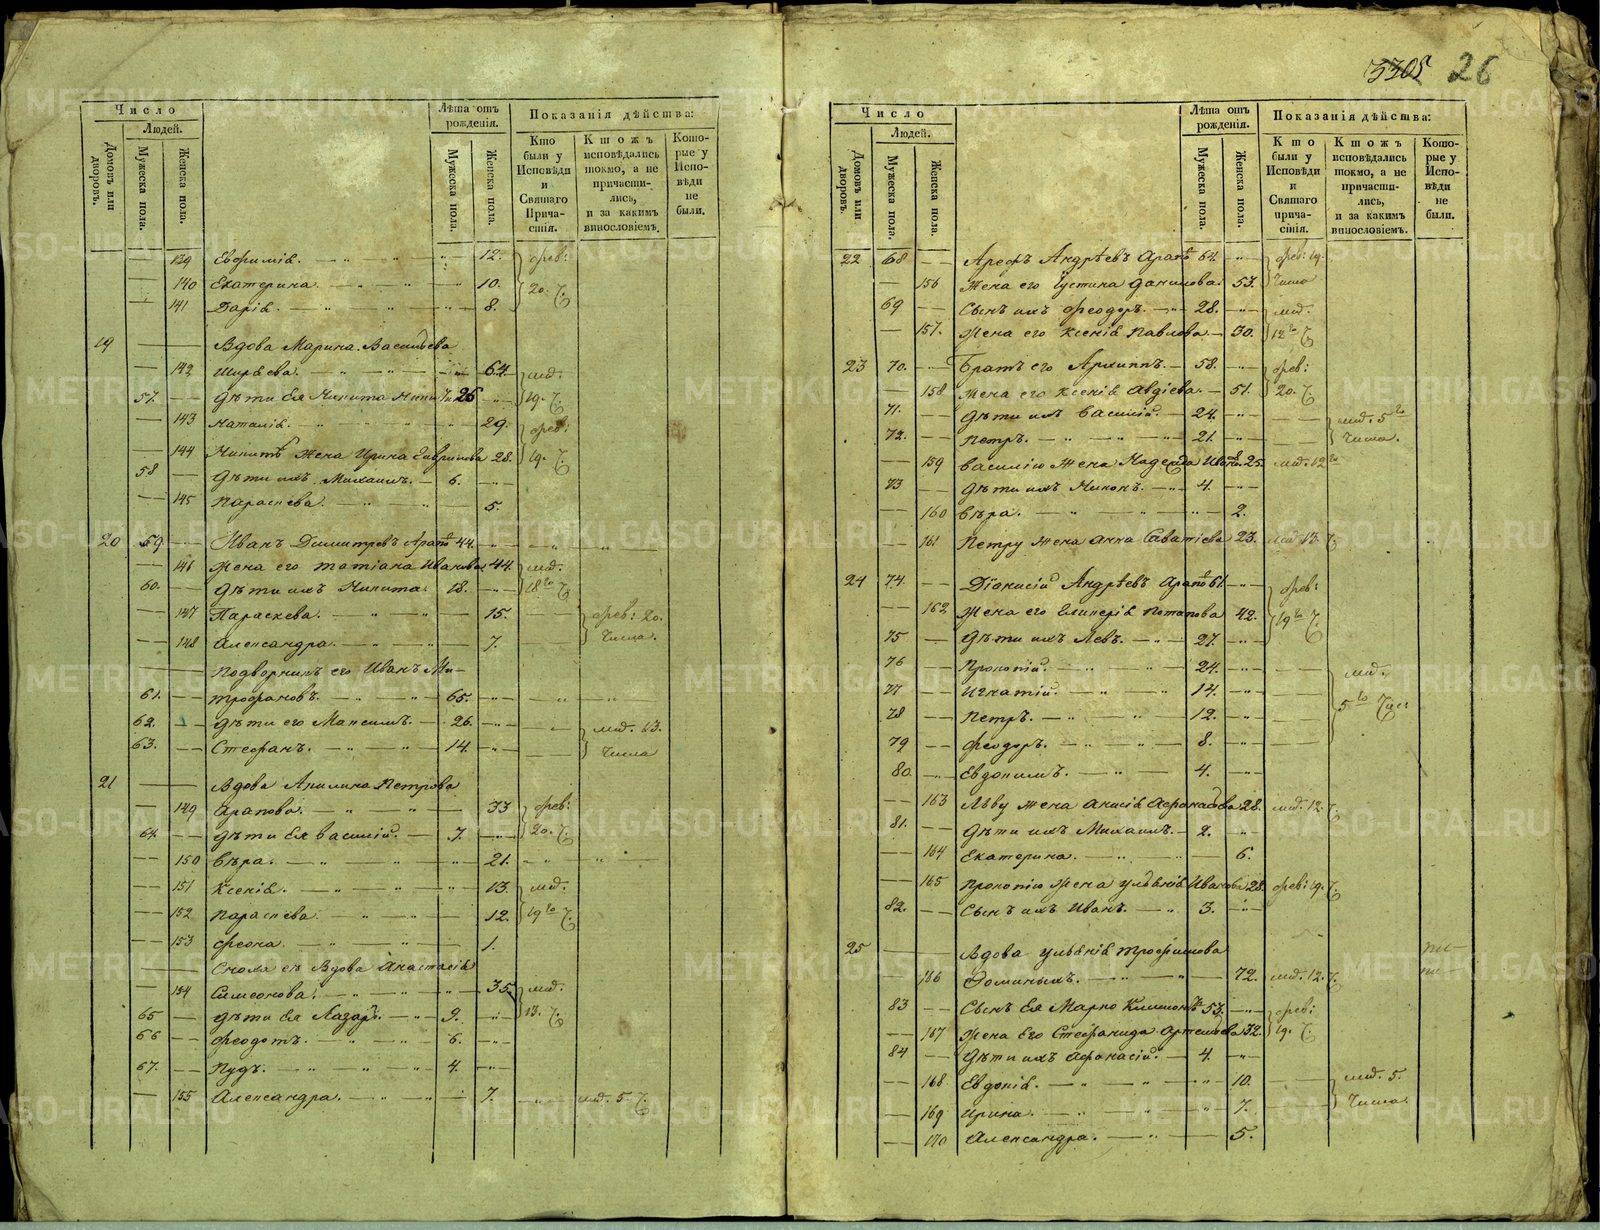 3305 26
Число
Людей.
Домовъ или дворовъ.
Мужеска пола.
Женска пола.
Лѣта отъ рожденія.
Мужеска пола.
Женска пола.
Показанія дѣйства:
Кто были у Исповѣди и Святаго Прича-стія.
Ктожъ исповѣдались токмо, а не причасти-лись, и за какимъ винословіемъ.
Кото-рые у Испо-вѣди не были.
139 Евфимія. 12. фев:
140 Екатерина. 10. 20. ч.
141 Дарія. 8.
19 Вдова Марина Васильева
142 64. мар.
57. Дѣти ея Никита 26 19. ч.
143 Наталія. 29. фев:
144 Никиты жена Ирина Гаврилова 28. 19. ч.
58 Дѣти ихъ Михаилъ. 6.
145 Параскева. 5.
20 59 Иванъ Димитревъ Арапов 44.
146 Жена его Татіана Иванова 44. мар.
60. Дѣти ихъ Никита. 18. 18го ч.
147 Параскева. 15. фев: 20.
148 Александра. 7. Числа.
Подворникъ его Иванъ Ми-
61. трофановъ. 65.
62. Дѣти его Максимъ. 26. мар. 13.
63. Стефанъ. 14. Числа
21 Вдова Акилина Петрова
149 Арапова. 33 фев:
64. Дѣти ея Василій. 7. 20. ч.
150 Вѣра. 21.
151 Ксенія. 13. мар.
152 Параскева. 12. 19го ч.
153 Феона. 1.
Сноха ея Вдова Анастасія
154 Симеонова. 35. мар.
65 Дѣти ея Лазарь. 9. 13. ч.
66 Феодотъ. 6.
67. Пудъ. 4.
155 Александра. 7. мар. 5 ч.
Число
Людей.
Домовъ или дворовъ.
Мужеска пола.
Женска пола.
Лѣта отъ рожденія.
Мужеска пола.
Женска пола.
Показанія дѣйства:
Кто были у Исповѣди и Святаго прича-стія.
Ктожъ исповѣдались токмо, а не причасти-лись, и за какимъ винословіемъ.
Кото-рые у Испо-вѣди не были.
22 68 Арефъ Андрѣевъ Арапов 64. фев: 19.
156 Жена его Іустина Данилова 53. Числа
69 Сынъ ихъ Феодоръ. 28. мар.
157. Жена его Ксенія Павлова 30. 12го ч
23 70. Братъ его Архиппъ. 58. фев:
158 Жена его Ксенія Авдіева. 51. 20. ч.
71. Дѣти ихъ Василій. 24. мар. 5го
72. Петръ. 21. Числа.
159 Василію жена Надежда Иванов 25. мар. 12го
73 Дѣти ихъ Никонъ. 4.
160 Вѣра. 2.
161 Петру жена Анна Саватіева 23. мар 13. ч.
24 74. Діонисій Андрѣевъ Арапов 61. фев:
162 Жена его Гликерія Потапова 42. 19го ч.
75 Дѣти ихъ Левъ. 27.
76 Прокопій. 24. мар.
77 Игнатій. 14. 5го Чис:
78 Петръ. 12.
79 Феодоръ. 8.
80. Евдокимъ. 4.
163 Льву жена Анисія Афонасова 28. мар. 12. ч.
81. Дѣти ихъ Михаилъ. 2.
164 Екатерина. 6.
165 Прокопію жена Ульянія Иванова 28. фев: 19. ч.
82. Сынъ ихъ Иванъ. 3.
25 Вдова Ульянія Трофимова
166 Фоминыхъ. 72. мар. 12. ч.
83 Сынъ ея Марко Климонт 53. фев:
167 Жена его Стефанида Артемьева 32. 19. ч
84 Дѣти ихъ Афонасій. 4.
168. Евдокія. 10. мар. 5.
169 Ирина. 7. Числа.
170 Александра. 5.
METRIKI.GASO-URAL.RU